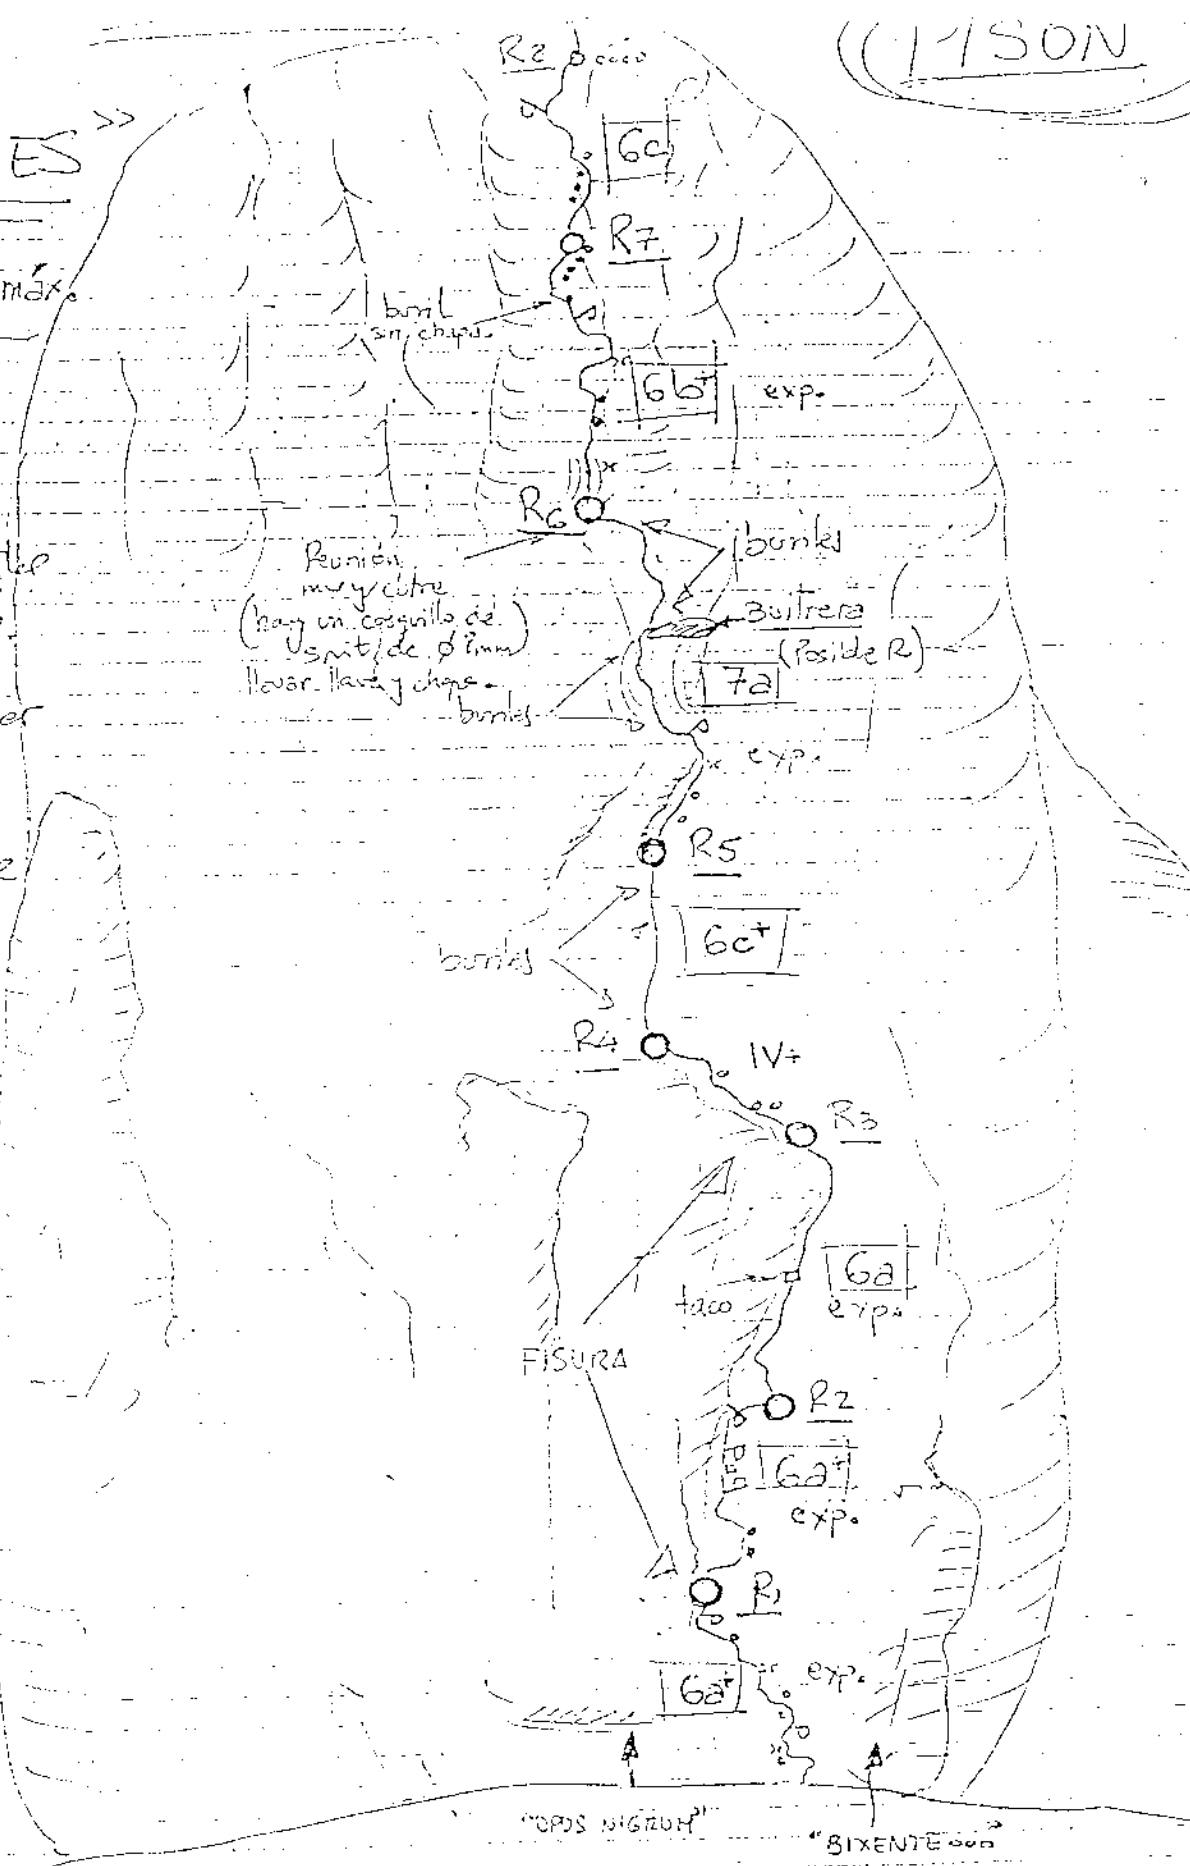 R8
ES »
máx.
6c
R7
buril
sin chapa.
6b+ exp.
R6
buriles
Reunión
muy cutre
(hay un casquillo de
spit de Ø 8mm)
llevar llave y chapa.
Buitrera
(Posible R)
7a
buriles
exp.
R5
6c+
buriles
R4
IV+
R3
6a
exp.
taco
FISURA
R2
6a+
exp.
R1
6a+
exp.
"OPUS NIGRUM"
"BIXENTE